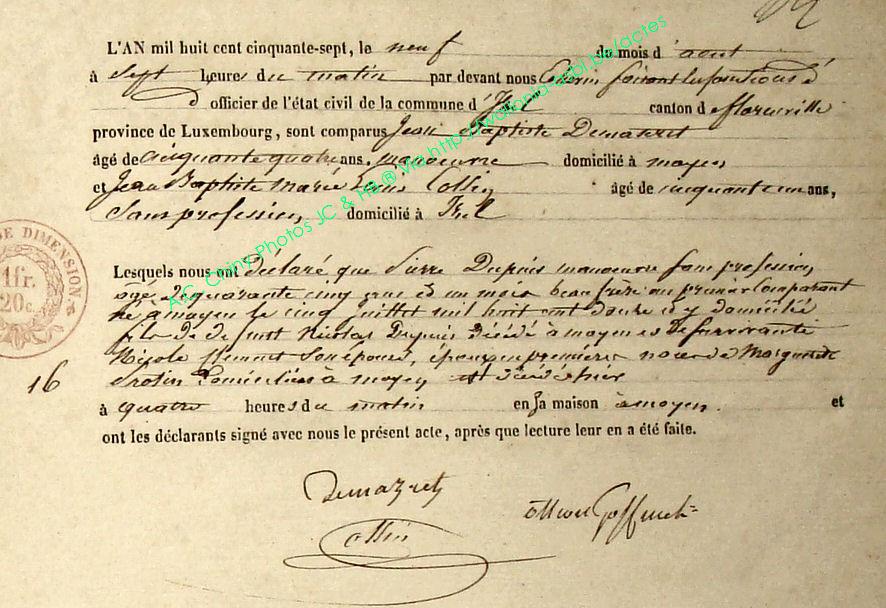 L'AN mil huit cent cinquante-sept, le neuf du mois d'aout
à sept heures du matin par devant nous Echevin faisant les fonctions d
d officier de l'état civil de la commune d'Izel canton de florenville
province de Luxembourg, sont comparus Jean Baptiste Demazret
âgé de cinquante quatre ans, manoeuvre domicilié à moyen
et Jean Baptiste Marie Louis Collin âgé de cinquante un ans,
Sans profession, domicilié à Izel
Lesquels nous ont déclaré que Pierre Dupuis manoeuvre sans profession
âgé de quarante cinq ans et un mois beau frère au premier Comparant
né a moyen le cinq juillet mil huit cent douze et y domicilié
fils de defunt Nicolas Dupuis décédé à moyen et de survivante
Nicole son épouse, époux en premières noces de Marguerite
domiciliés à moyen est décédé hier
à quatre heures du matin en sa maison à moyen. et
ont les déclarants signé avec nous le présent acte, après que lecture leur en a été faite.
Demazret
Collin
Goffinet
16
DE DIMENSION
1fr.
20c.
A.C. Chiny Photos JC & HB ® Via http://wallonia-asbl.be/actes